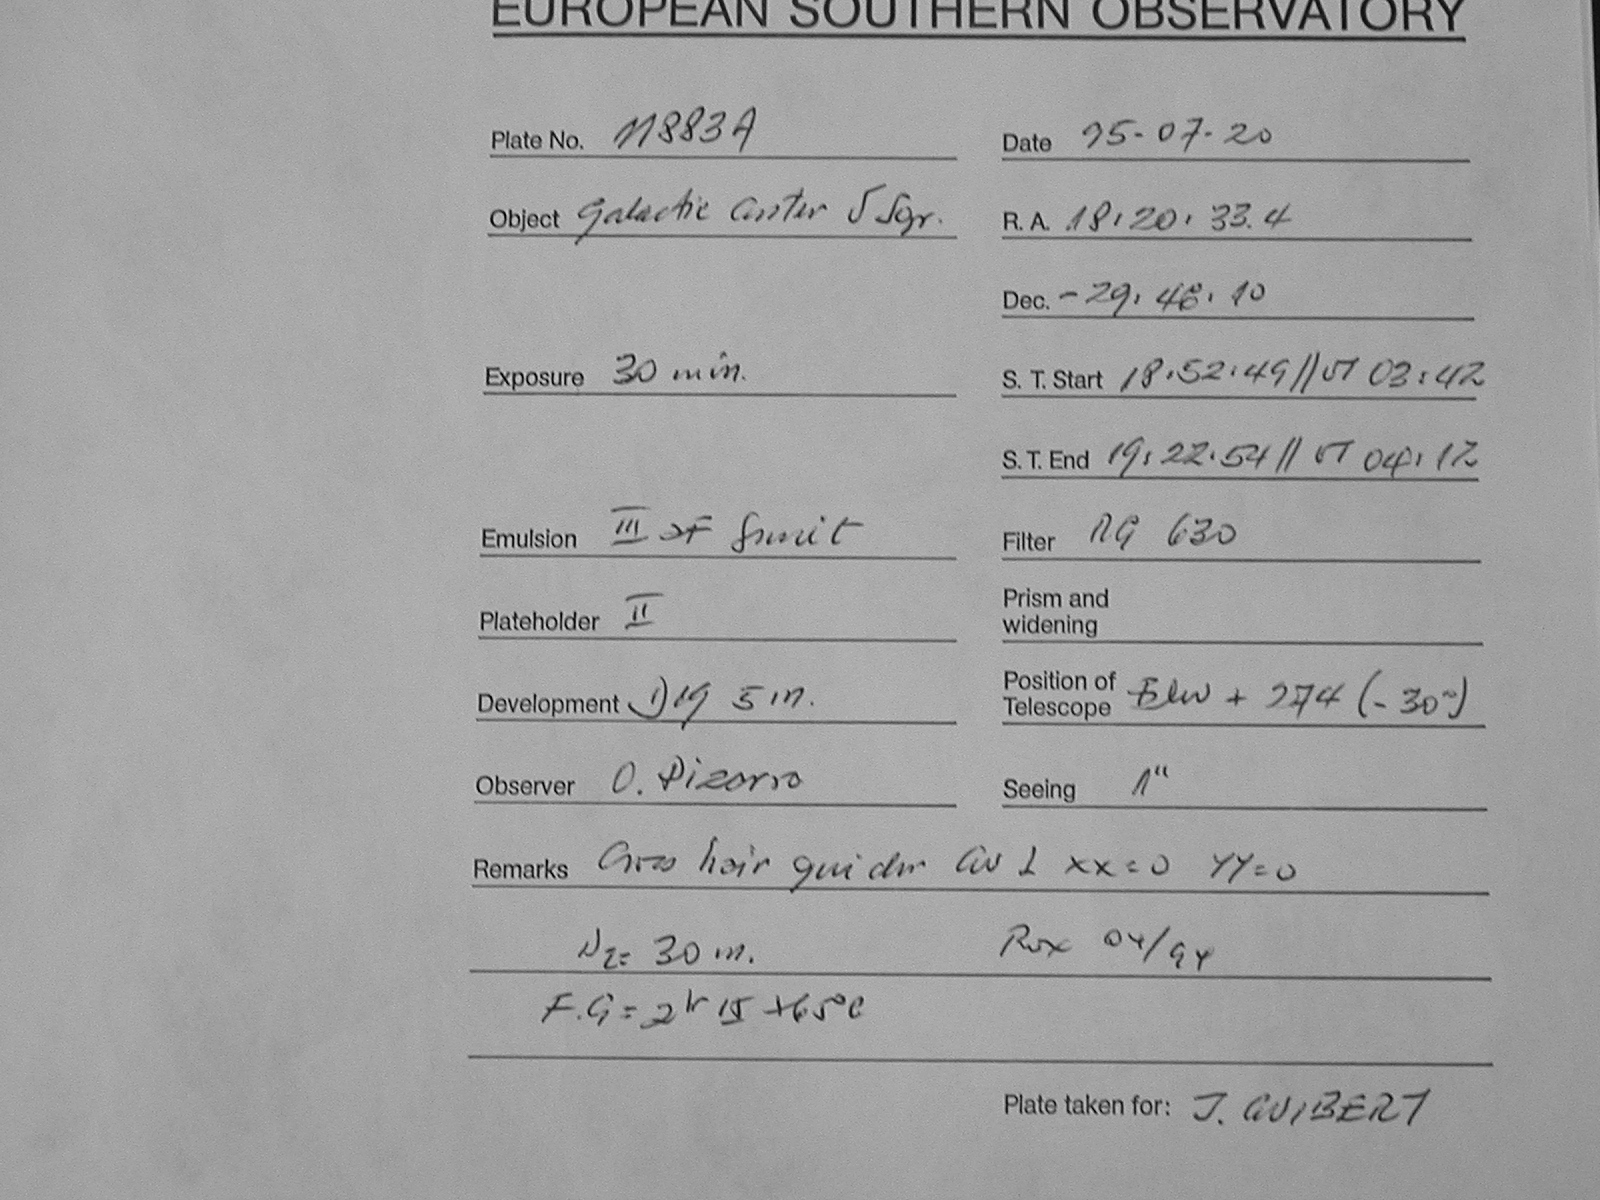 EUROPEAN SOUTHERN OBSERVATORY
Plate No. 11883A Date 95-07-20
Object Galactic Center 5 Sgr. R. A. 18:20:33.4
Dec. -29:48:10
Exposure 30 min. S. T. Start 18:52:49 // UT 03:42
S. T. End 19:22:54 // UT 04:12
Emulsion III aF Filter RG 630
Plateholder II Prism and widening
Development D19 5 m. Position of Telescope + 274 (-30
Observer O. Pizarro Seeing 1"
Remarks Cross hair guider XX=0 YY=0
N2= 30 m.
F.G = 2hr 15 +65°C
Plate taken for: J. GUIBERT